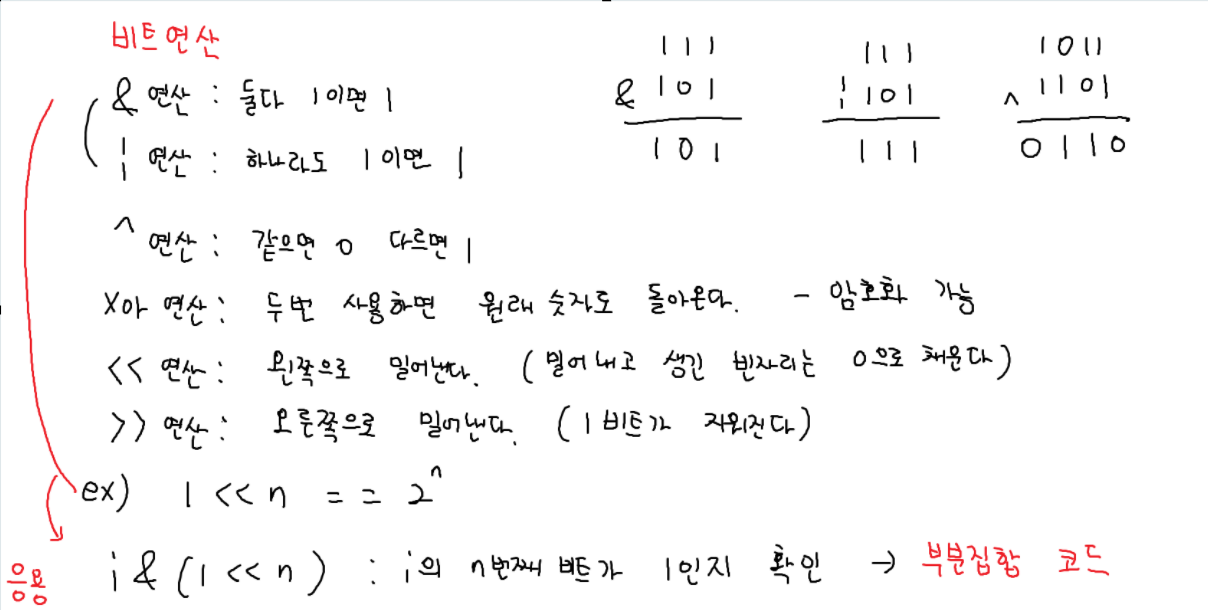 비트연산
& 연산 : 둘다 1이면 1
| 연산 : 하나라도 1이면 1
^ 연산 : 같으면 0 다르면 1
XOR 연산 : 두번 사용하면 원래 숫자로 돌아온다. - 암호화 가능
<< 연산 : 왼쪽으로 밀어낸다. (밀어내고 생긴 빈자리는 0으로 채운다)
>> 연산 : 오른쪽으로 밀어낸다. (1 비트가 지워진다)
ex) 1 << n == 2ⁿ
응용
i & (1 << n) : i의 n번째 비트가 1인지 확인 → 부분집합 코드
111
& 101
101
111
| 101
111
1011
^ 1101
0110